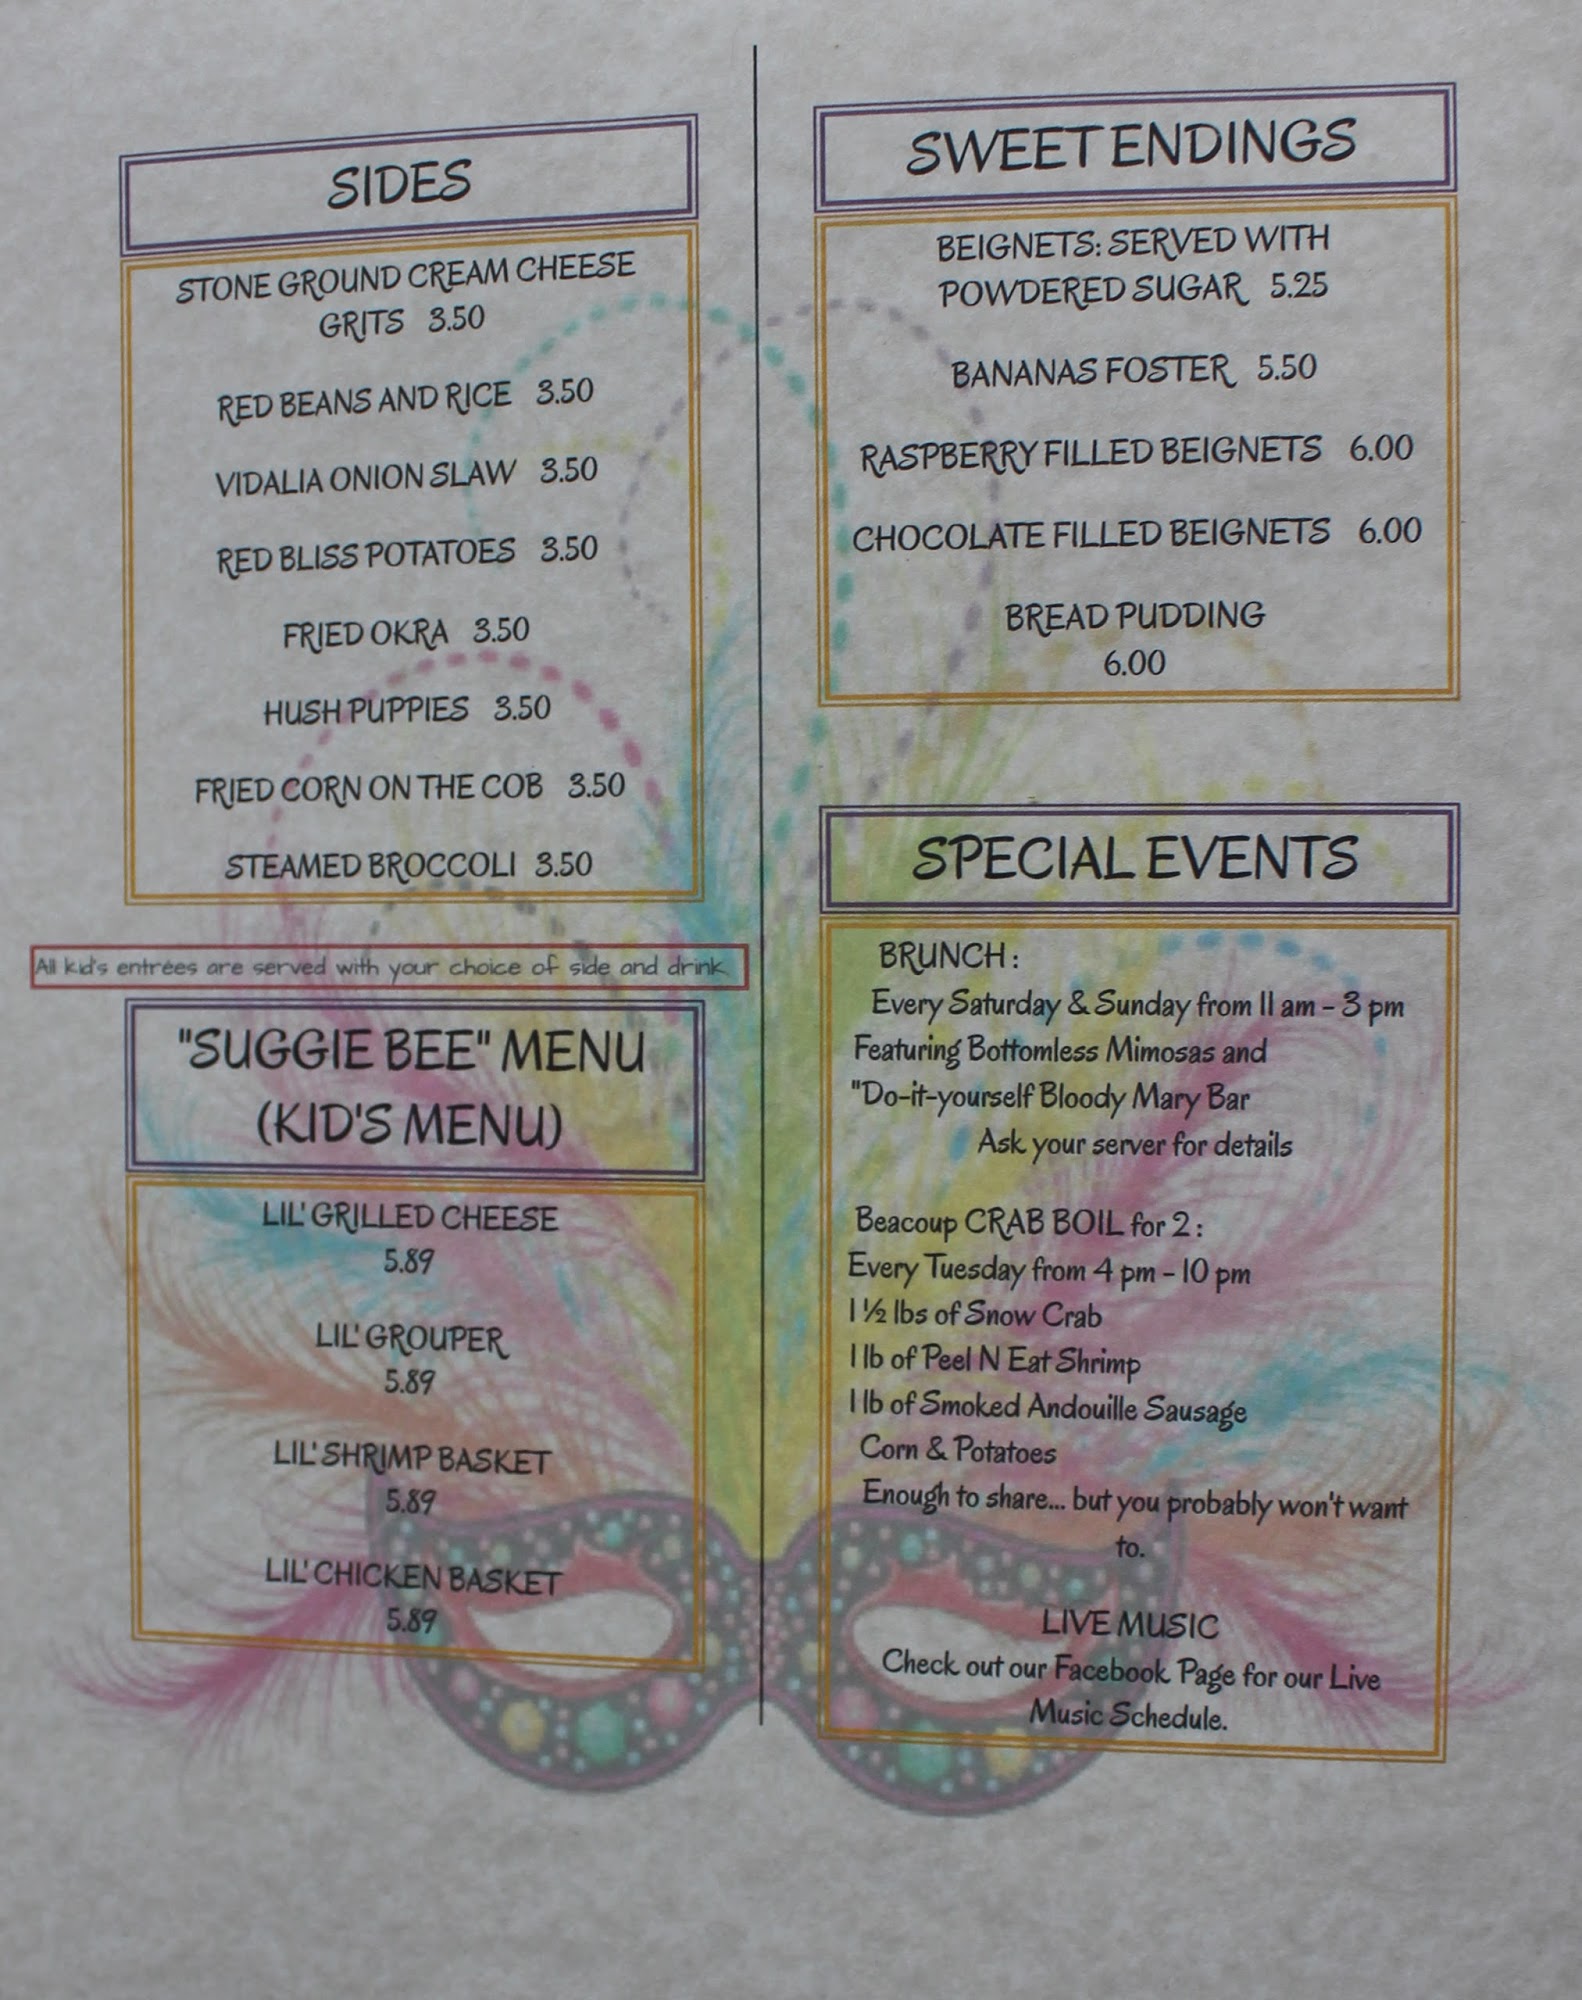 SIDES
STONE GROUND CREAM CHEESE
GRITS 3.50
RED BEANS AND RICE 3.50
VIDALIA ONION SLAW 3.50
RED BLISS POTATOES 3.50
FRIED OKRA 3.50
HUSH PUPPIES 3.50
FRIED CORN ON THE COB 3.50
STEAMED BROCCOLI 3.50
All kid's entrées are served with your choice of side and drink.
"SUGGIE BEE" MENU
(KID'S MENU)
LIL' GRILLED CHEESE
5.89
LIL' GROUPER
5.89
LIL' SHRIMP BASKET
5.89
LIL' CHICKEN BASKET
5.89
SWEET ENDINGS
BEIGNETS: SERVED WITH
POWDERED SUGAR 5.25
BANANAS FOSTER 5.50
RASPBERRY FILLED BEIGNETS 6.00
CHOCOLATE FILLED BEIGNETS 6.00
BREAD PUDDING
6.00
SPECIAL EVENTS
BRUNCH:
Every Saturday & Sunday from 11 am - 3 pm
Featuring Bottomless Mimosas and
"Do-it-yourself Bloody Mary Bar
Ask your server for details
Beacoup CRAB BOIL for 2:
Every Tuesday from 4 pm - 10 pm
1 ½ lbs of Snow Crab
1 lb of Peel N Eat Shrimp
1 lb of Smoked Andouille Sausage
Corn & Potatoes
Enough to share... but you probably won't want
to.
LIVE MUSIC
Check out our Facebook Page for our Live
Music Schedule.